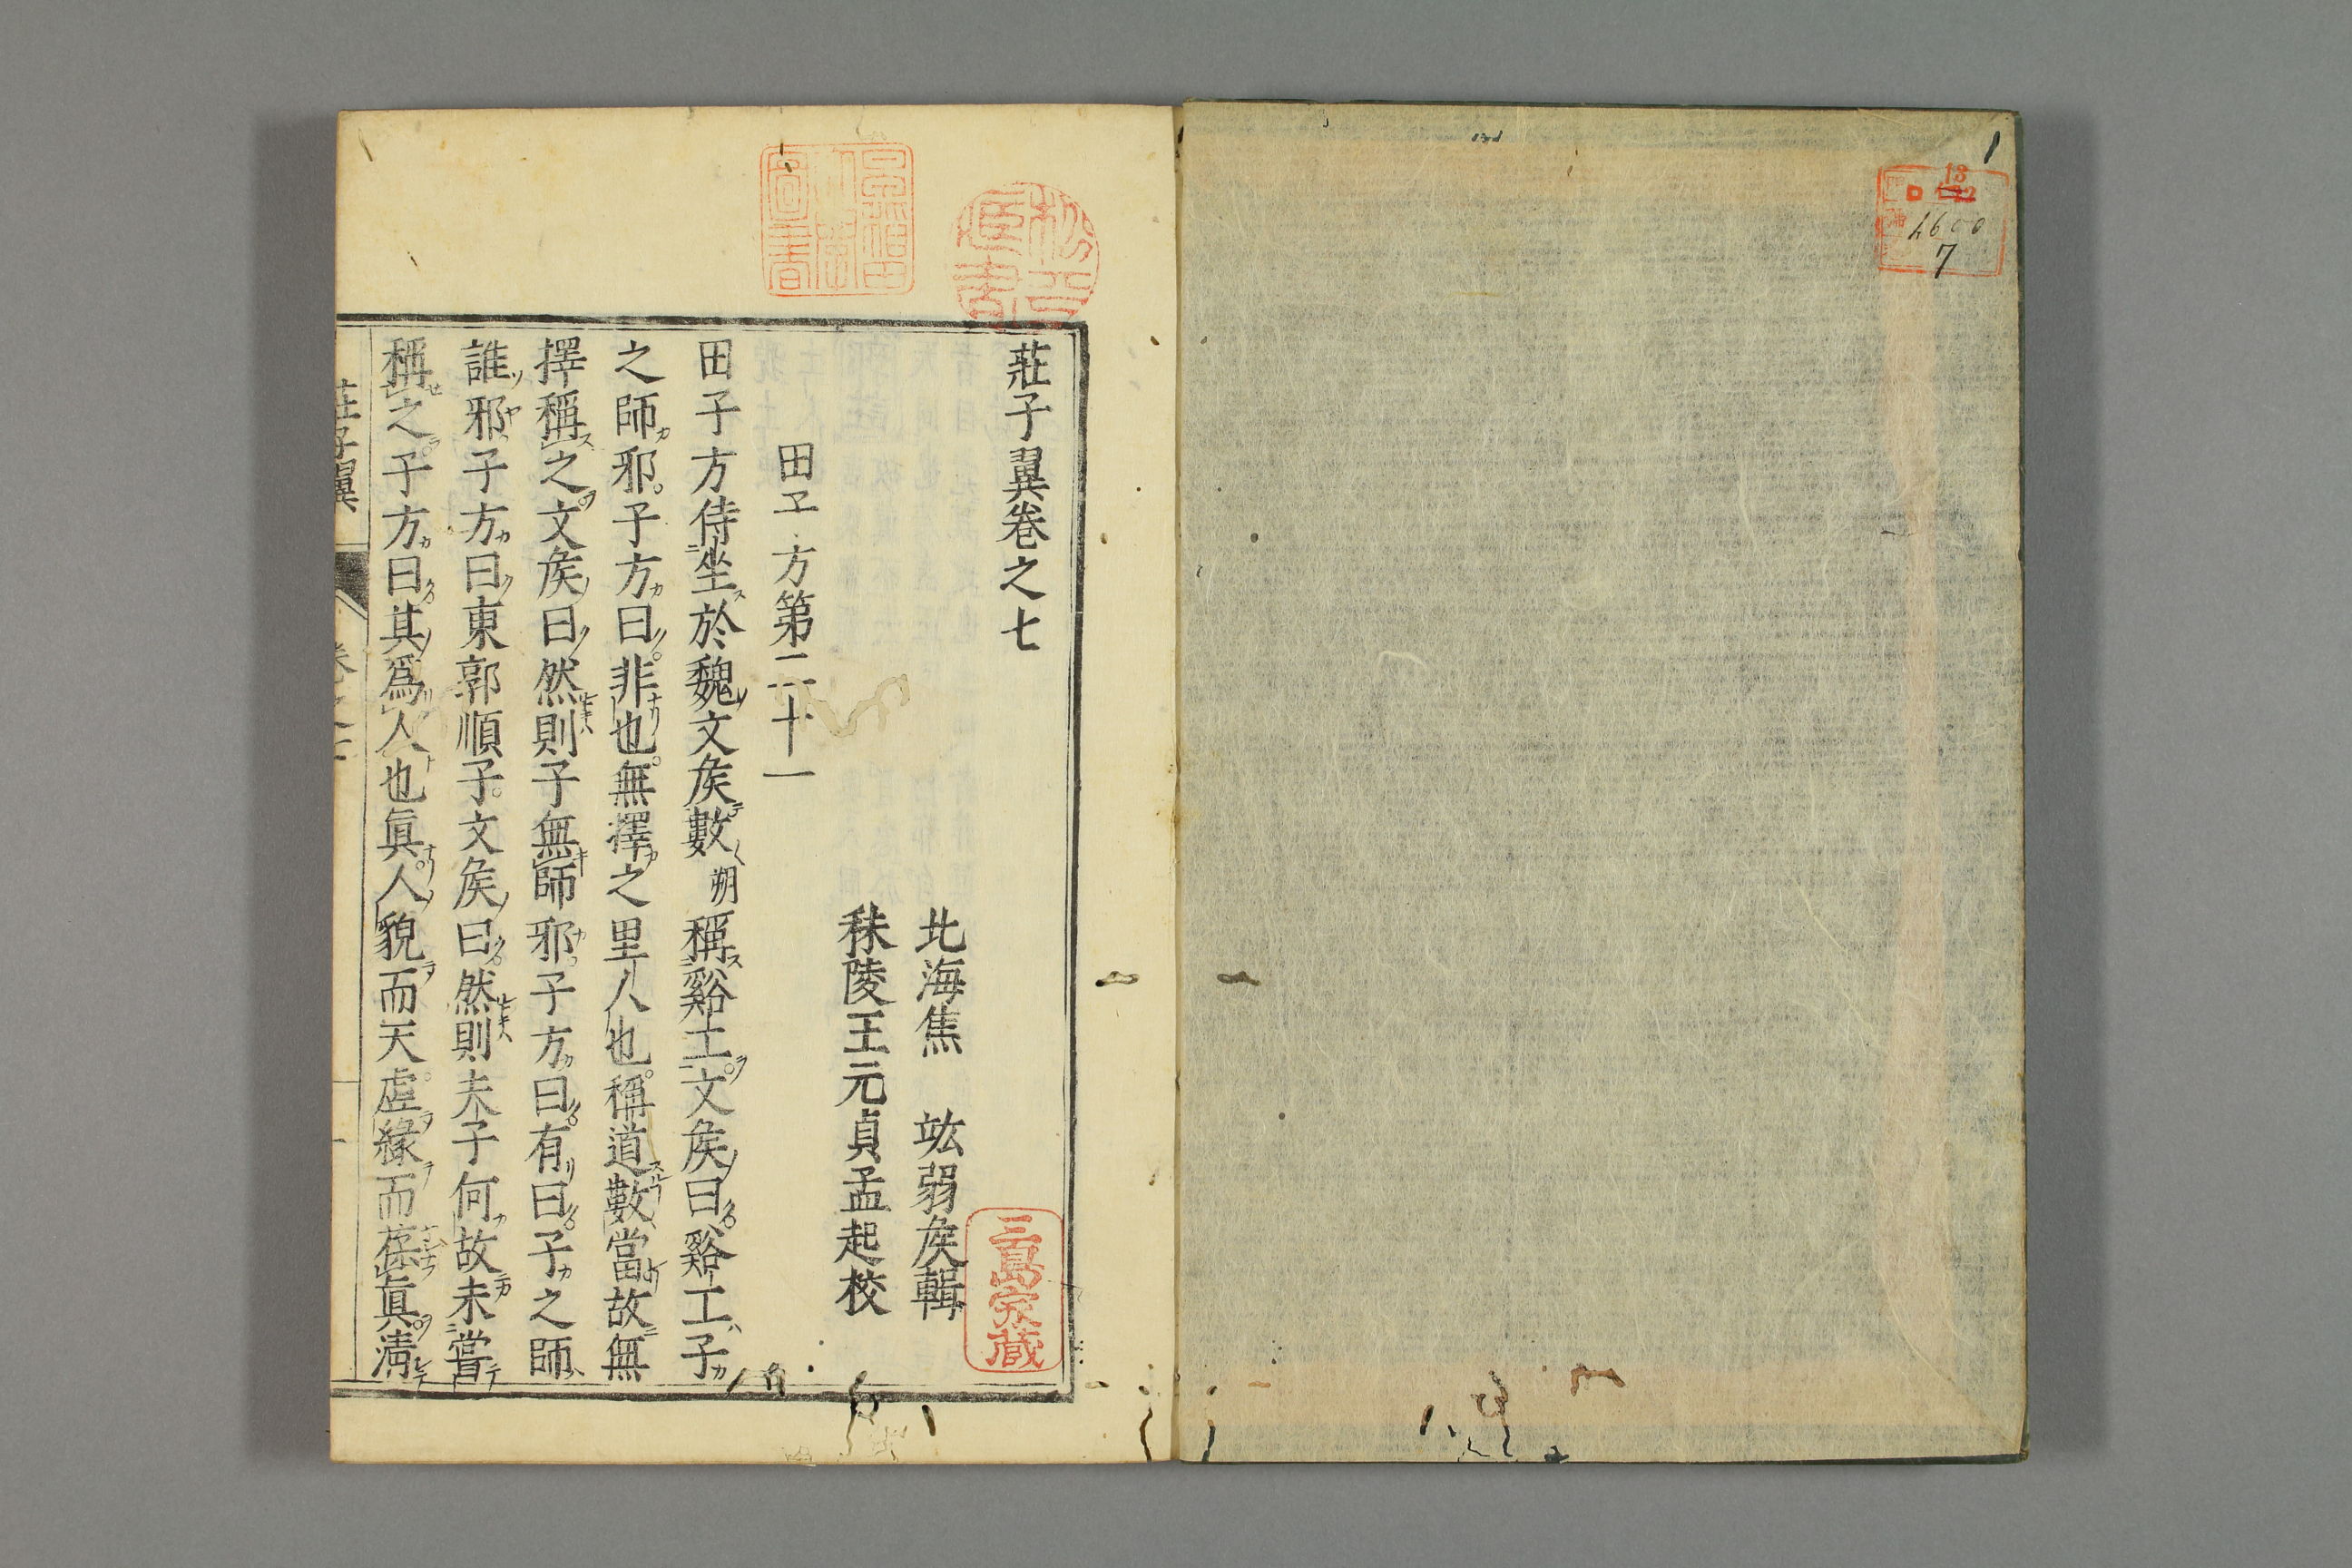 13
4600
7
莊子翼卷之七
北海焦　竑弱矦輯
秣陵王元貞孟起校
田子方第二十一
田子方侍坐於魏文矦數朔稱谿工文矦曰谿工子
之師邪子方曰非也無擇之里人也稱道數當故無
擇稱之文矦曰然則子無師邪子方曰有曰子之師
誰邪子方曰東郭順子文矦曰然則夫子何故未嘗
稱之子方曰其爲人也眞人貌而天虛緣而葆眞淸
莊子翼
卷之七
三島家藏
圖書